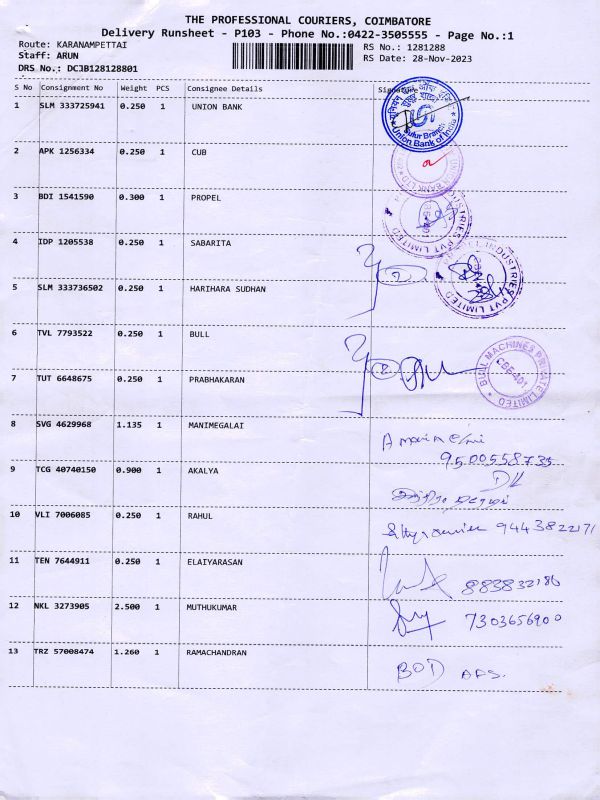 THE PROFESSIONAL COURIERS, COIMBATORE
Delivery Runsheet - P103 - Phone No.:0422-3505555 - Page No.:1
Route: KARANAMPETTAI RS No.: 1281288
Staff: ARUN RS Date: 28-Nov-2023
DRS No.: DCJB128128801
S No Consignment No Weight PCS Consignee Details Signature
1 SLM 333725941 0.250 1 UNION BANK
Sulur Branch
Union Bank of India
2 APK 1256334 0.250 1 CUB
3 BDI 1541590 0.300 1 PROPEL
INDUSTRIES PVT LIMITED
4 IDP 1205538 0.250 1 SABARITA
PROPEL INDUSTRIES PVT LIMITED
5 SLM 333736502 0.250 1 HARIHARA SUDHAN
6 TVL 7793522 0.250 1 BULL
BULL MACHINES PRIVATE LIMITED
7 TUT 6648675 0.250 1 PRABHAKARAN
8 SVG 4629968 1.135 1 MANIMEGALAI
9500558735
9 TCG 40740150 0.900 1 AKALYA
10 VLI 7006085 0.250 1 RAHUL 9443822171
11 TEN 7644911 0.250 1 ELAIYARASAN
12 NKL 3273905 2.500 1 MUTHUKUMAR 7303656900
13 TRZ 57008474 1.260 1 RAMACHANDRAN
BOD